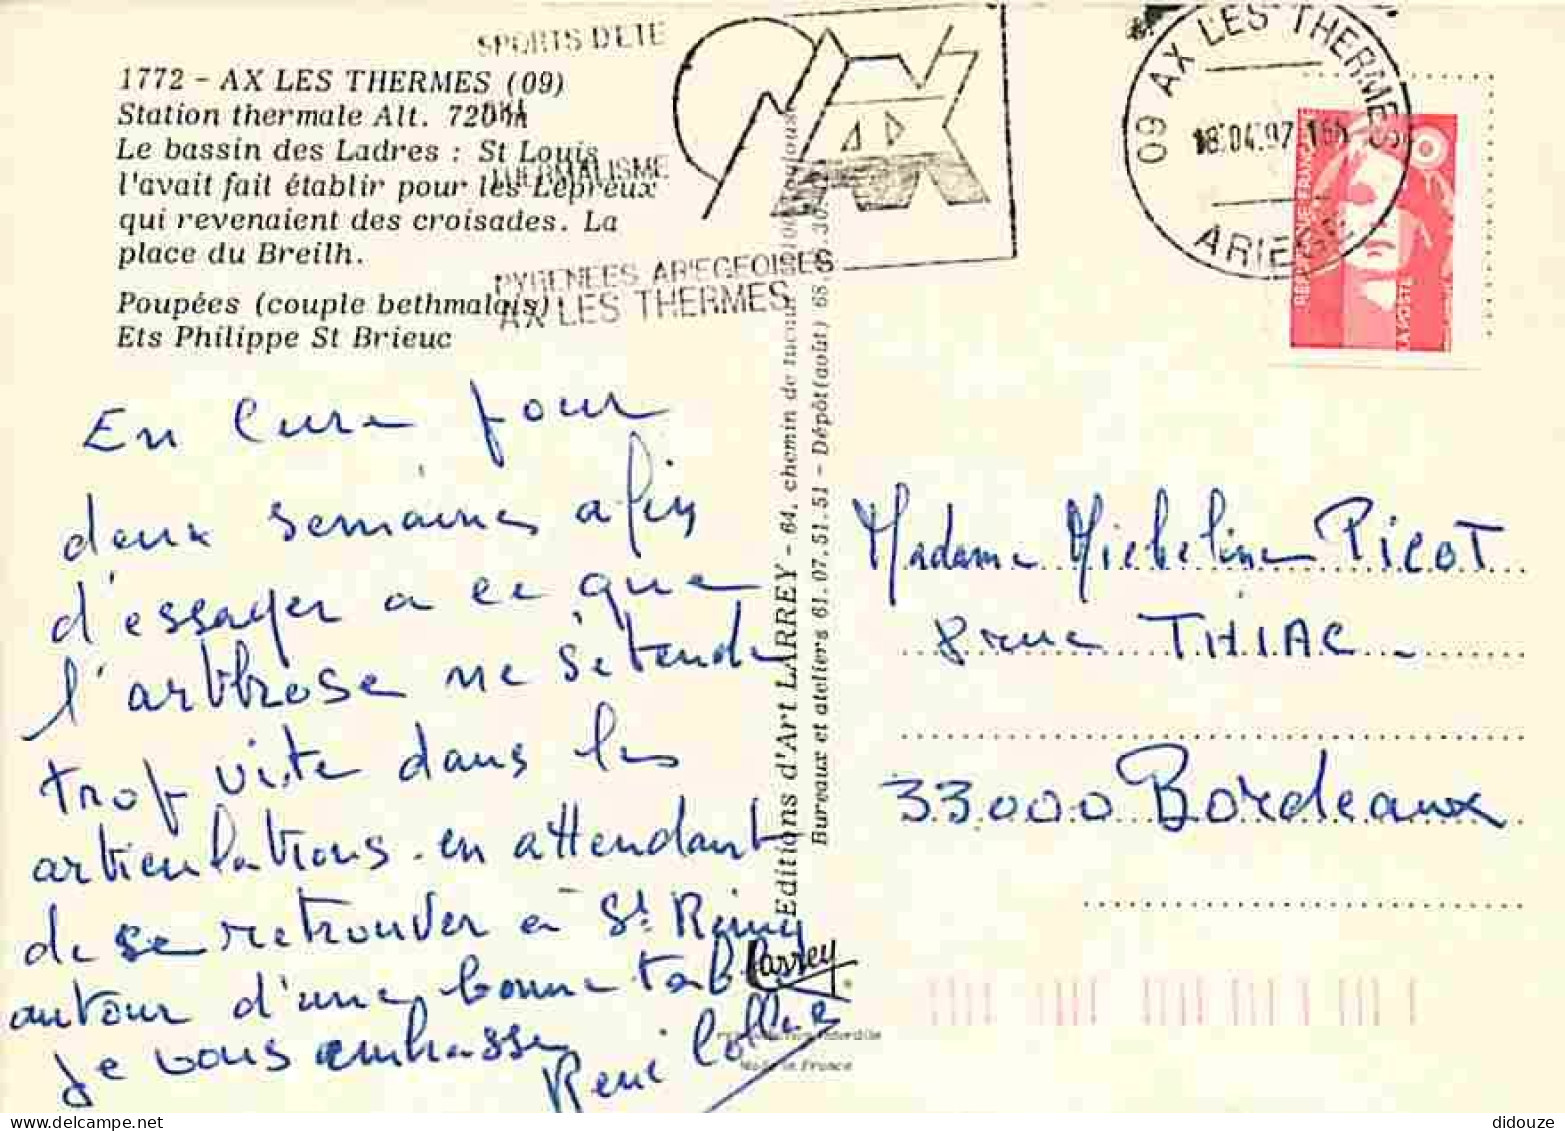 1772 - AX LES THERMES (09)
Station thermale Alt. 720 m
Le bassin des Ladres : St Louis
l'avait fait établir pour les Lépreux
qui revenaient des croisades. La
place du Breilh.
Poupées (couple bethmalais)
Ets Philippe St Brieuc
SPORTS D'ETE
THERMALISME
PYRENEES ARIEGEOISES
AX LES THERMES
AX
09 AX LES THERMES
ARIEGE
REPUBLIQUE FRANÇAISE
LA POSTE
En cure pour
deux semaines afin
d'essayer a ce que
l'arthrose ne s'étende
trop vite dans les
articulations. en attendant
de se retrouver à St Rémy
autour d'une bonne table
je vous embrasse
René
Editions d'Art LARREY - 64, chemin de
Bureaux et ateliers 61.07.51.51 - Dépôt (août) 68
Larrey
Made in France
Madame Micheline PICOT
8 rue THIAC
33000 Bordeaux
didouze